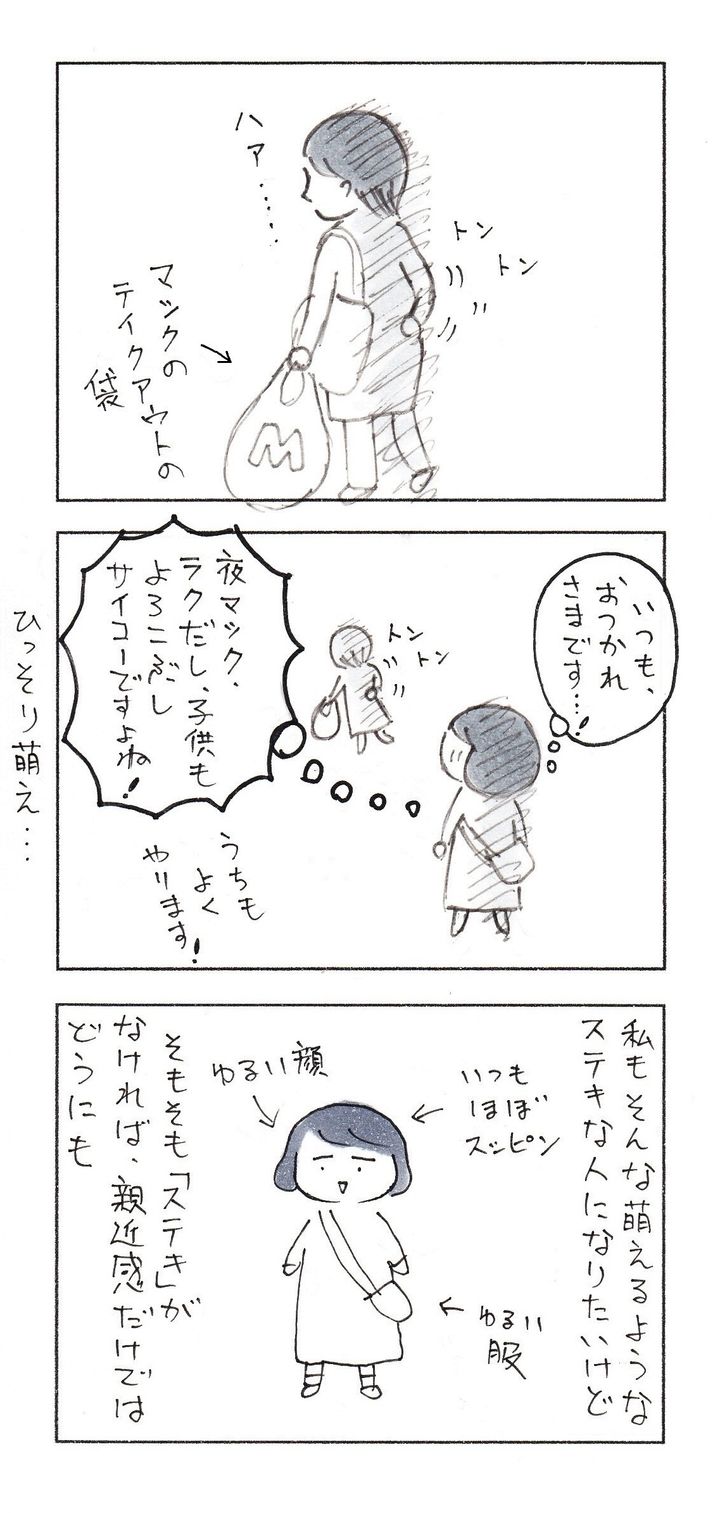 ハァ・・・・・・
トン
トン
マックの
テイクアウトの
袋
M
いつも、
おつかれ
さまです…!
トン
トン
夜マック、
ラクだし、子供も
よろこぶし
サイコーですよね!
うちも
よく
やります!
ひっそり萌え…
私もそんな萌えるような
ステキな人になりたいけど
いつも
ほぼ
スッピン
ゆるい顔
ゆるい
服
そもそも「ステキ」が
なければ、親近感だけでは
どうにも